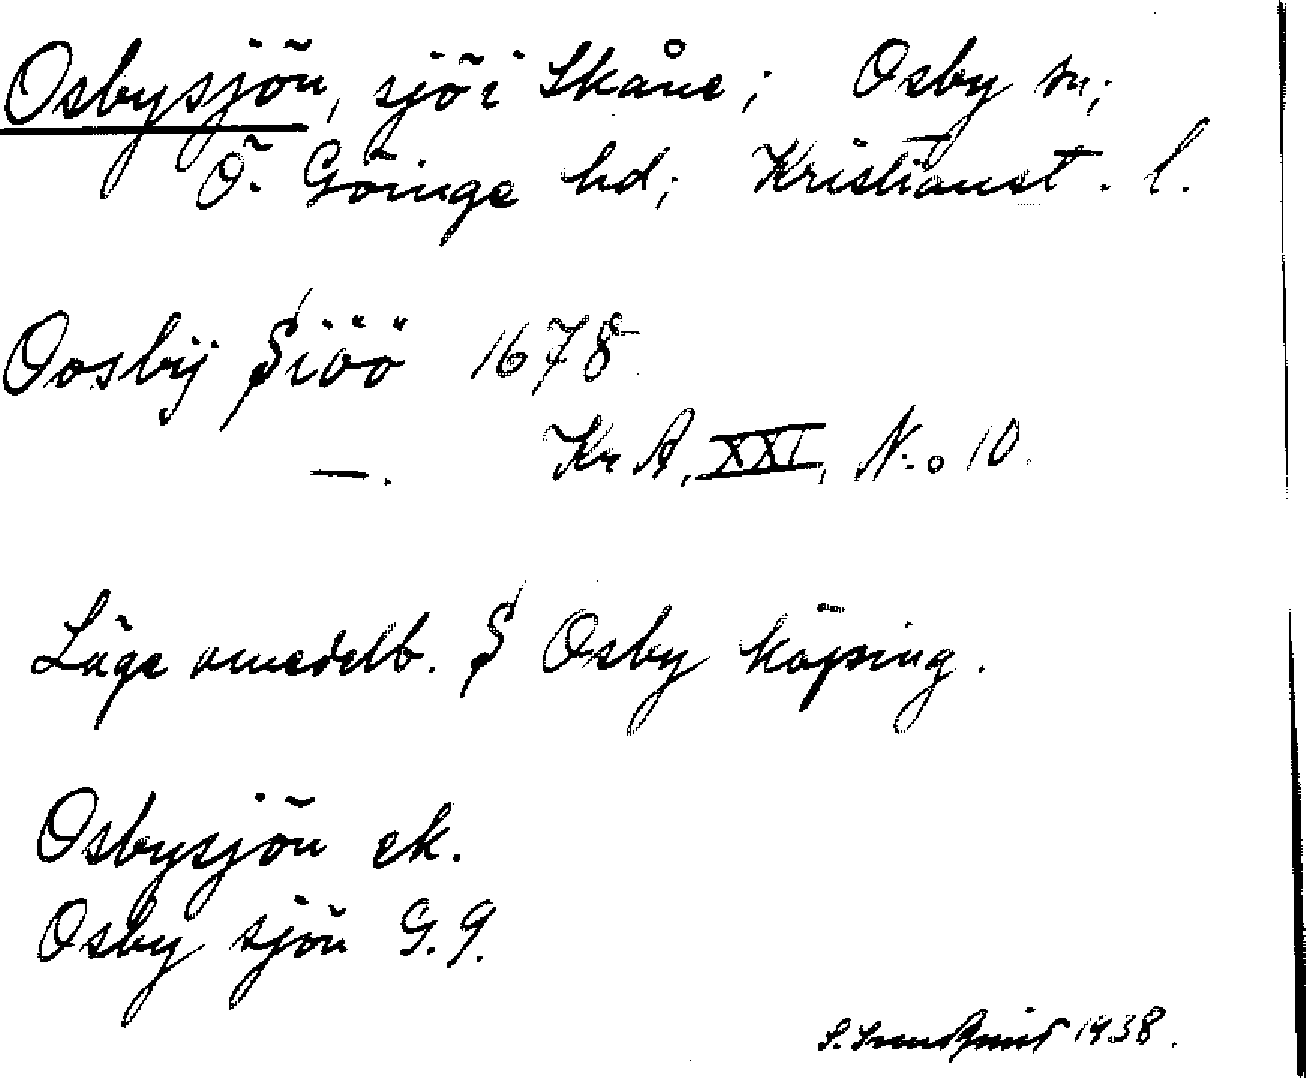 Osbysjön, sjö i Skåne; Osby sn;
Ö. Göinge hd; Kristianst. l.
Oosbij Siöö 1678
—. Kr A, XXI, N:o 10.
Läge omedelb. S Osby köping.
Osbysjön ek.
Osby sjön G.9.
S. 1938.